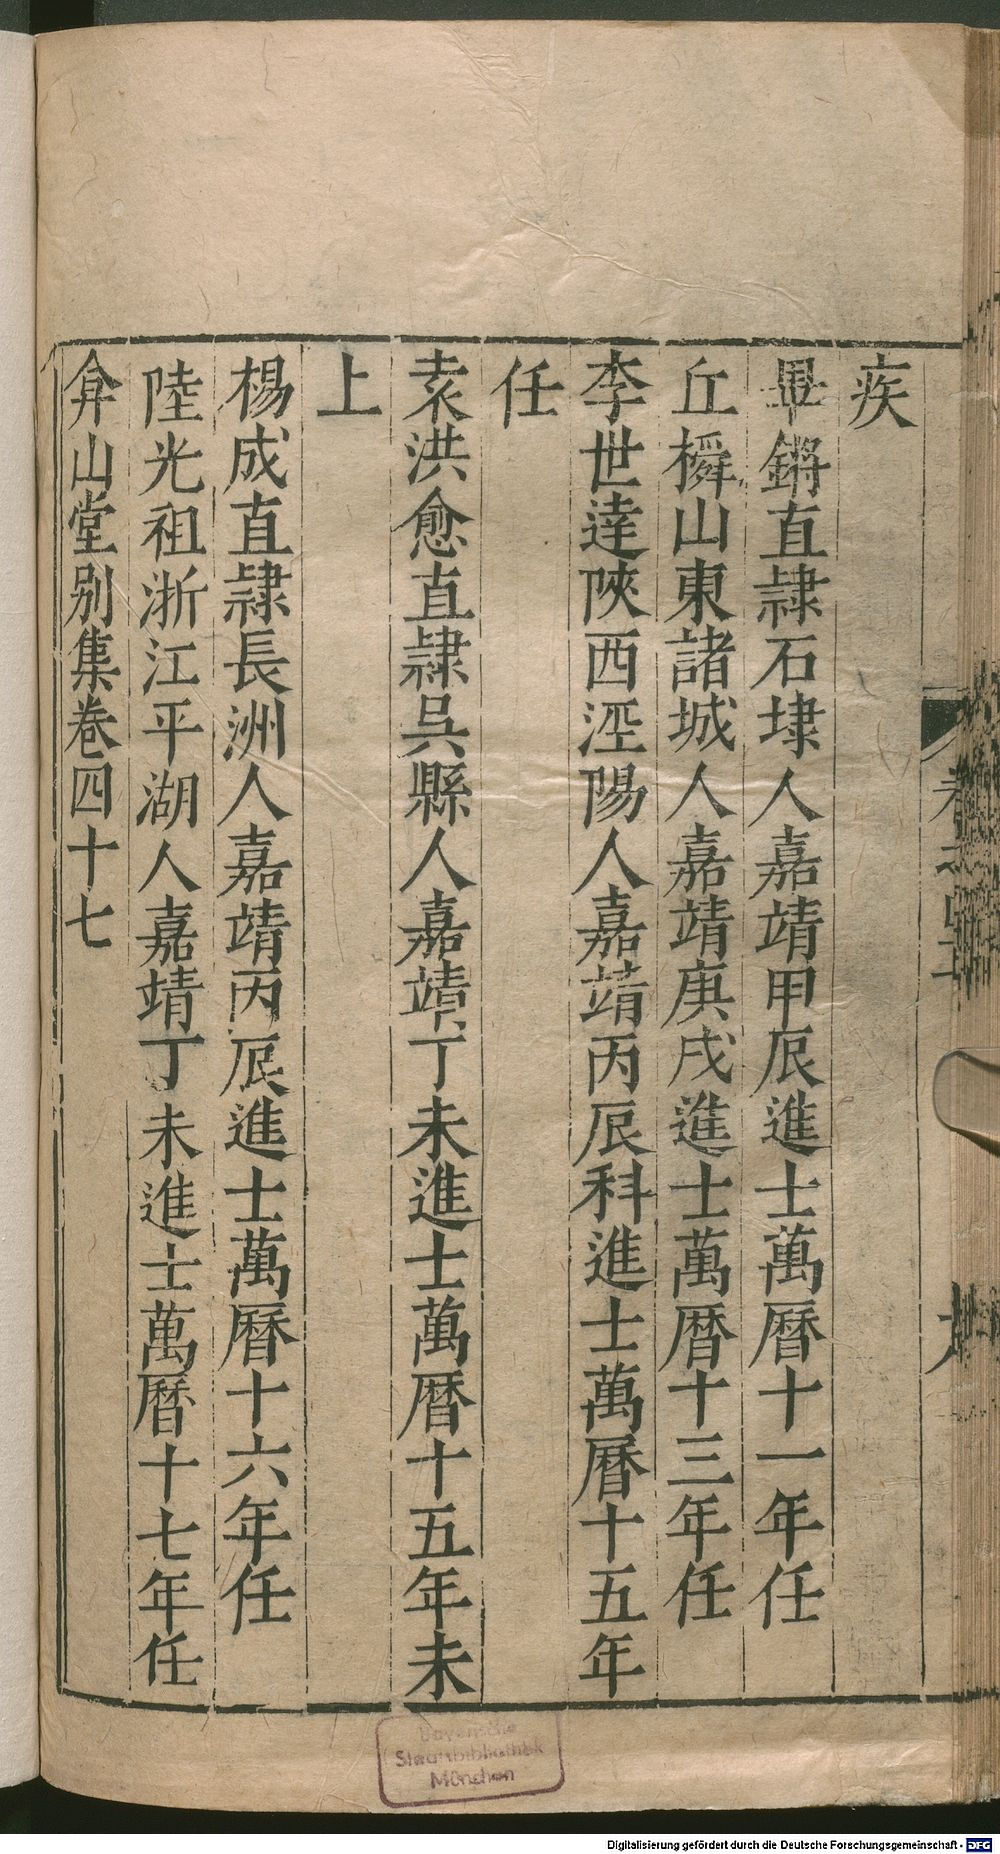 疾
畢鏘直隸石埭人嘉靖甲辰進士萬曆十一年任
丘橓山東諸城人嘉靖庚戌進士萬曆十三年任
李世達陝西涇陽人嘉靖丙辰科進士萬曆十五年
任
袁洪愈直隸吳縣人嘉靖丁未進士萬曆十五年未
上
楊成直隸長洲人嘉靖丙辰進士萬曆十六年任
陸光祖浙江平湖人嘉靖丁未進士萬曆十七年任
弇山堂别集卷四十七
Bayerische
Staatsbibliothek
München
Digitalisierung gefördert durch die Deutsche Forschungsgemeinschaft - DFG